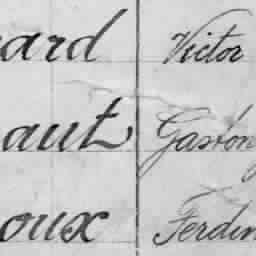 ard Victor
aut Gaston
oux Ferdin